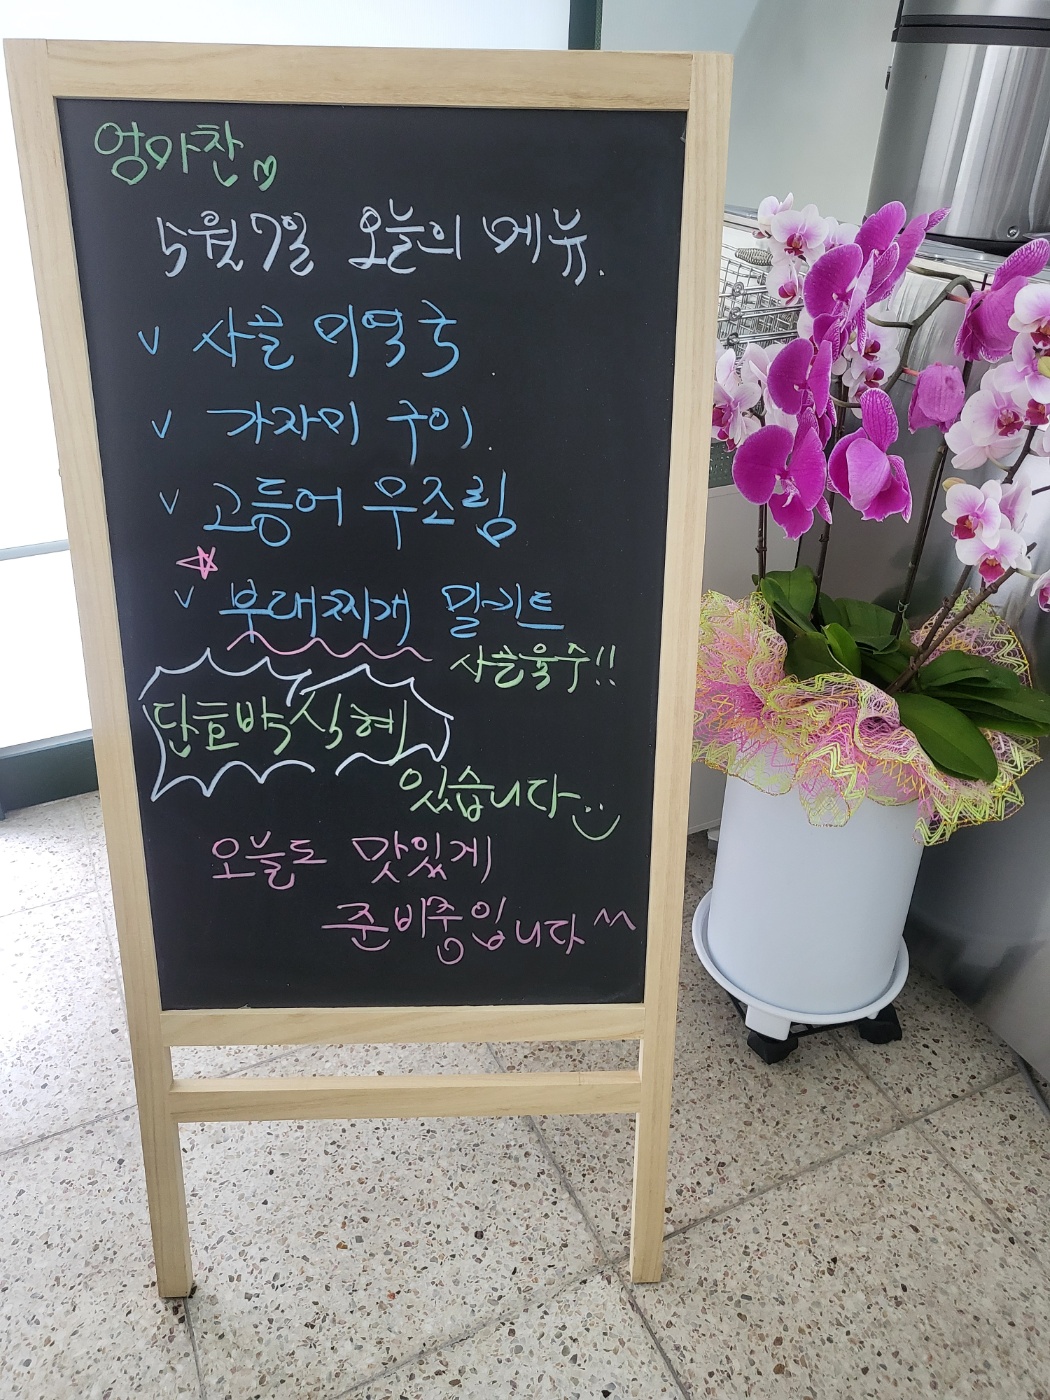 엄마찬♡
5월7일 오늘의 메뉴.
v 사골 미역국
v 가자미 구이.
v 고등어 무조림
☆
v 부대찌개 밀키트
사골육수!!
단호박 식혜
있습니다 :)
오늘도 맛있게
준비중입니다^^